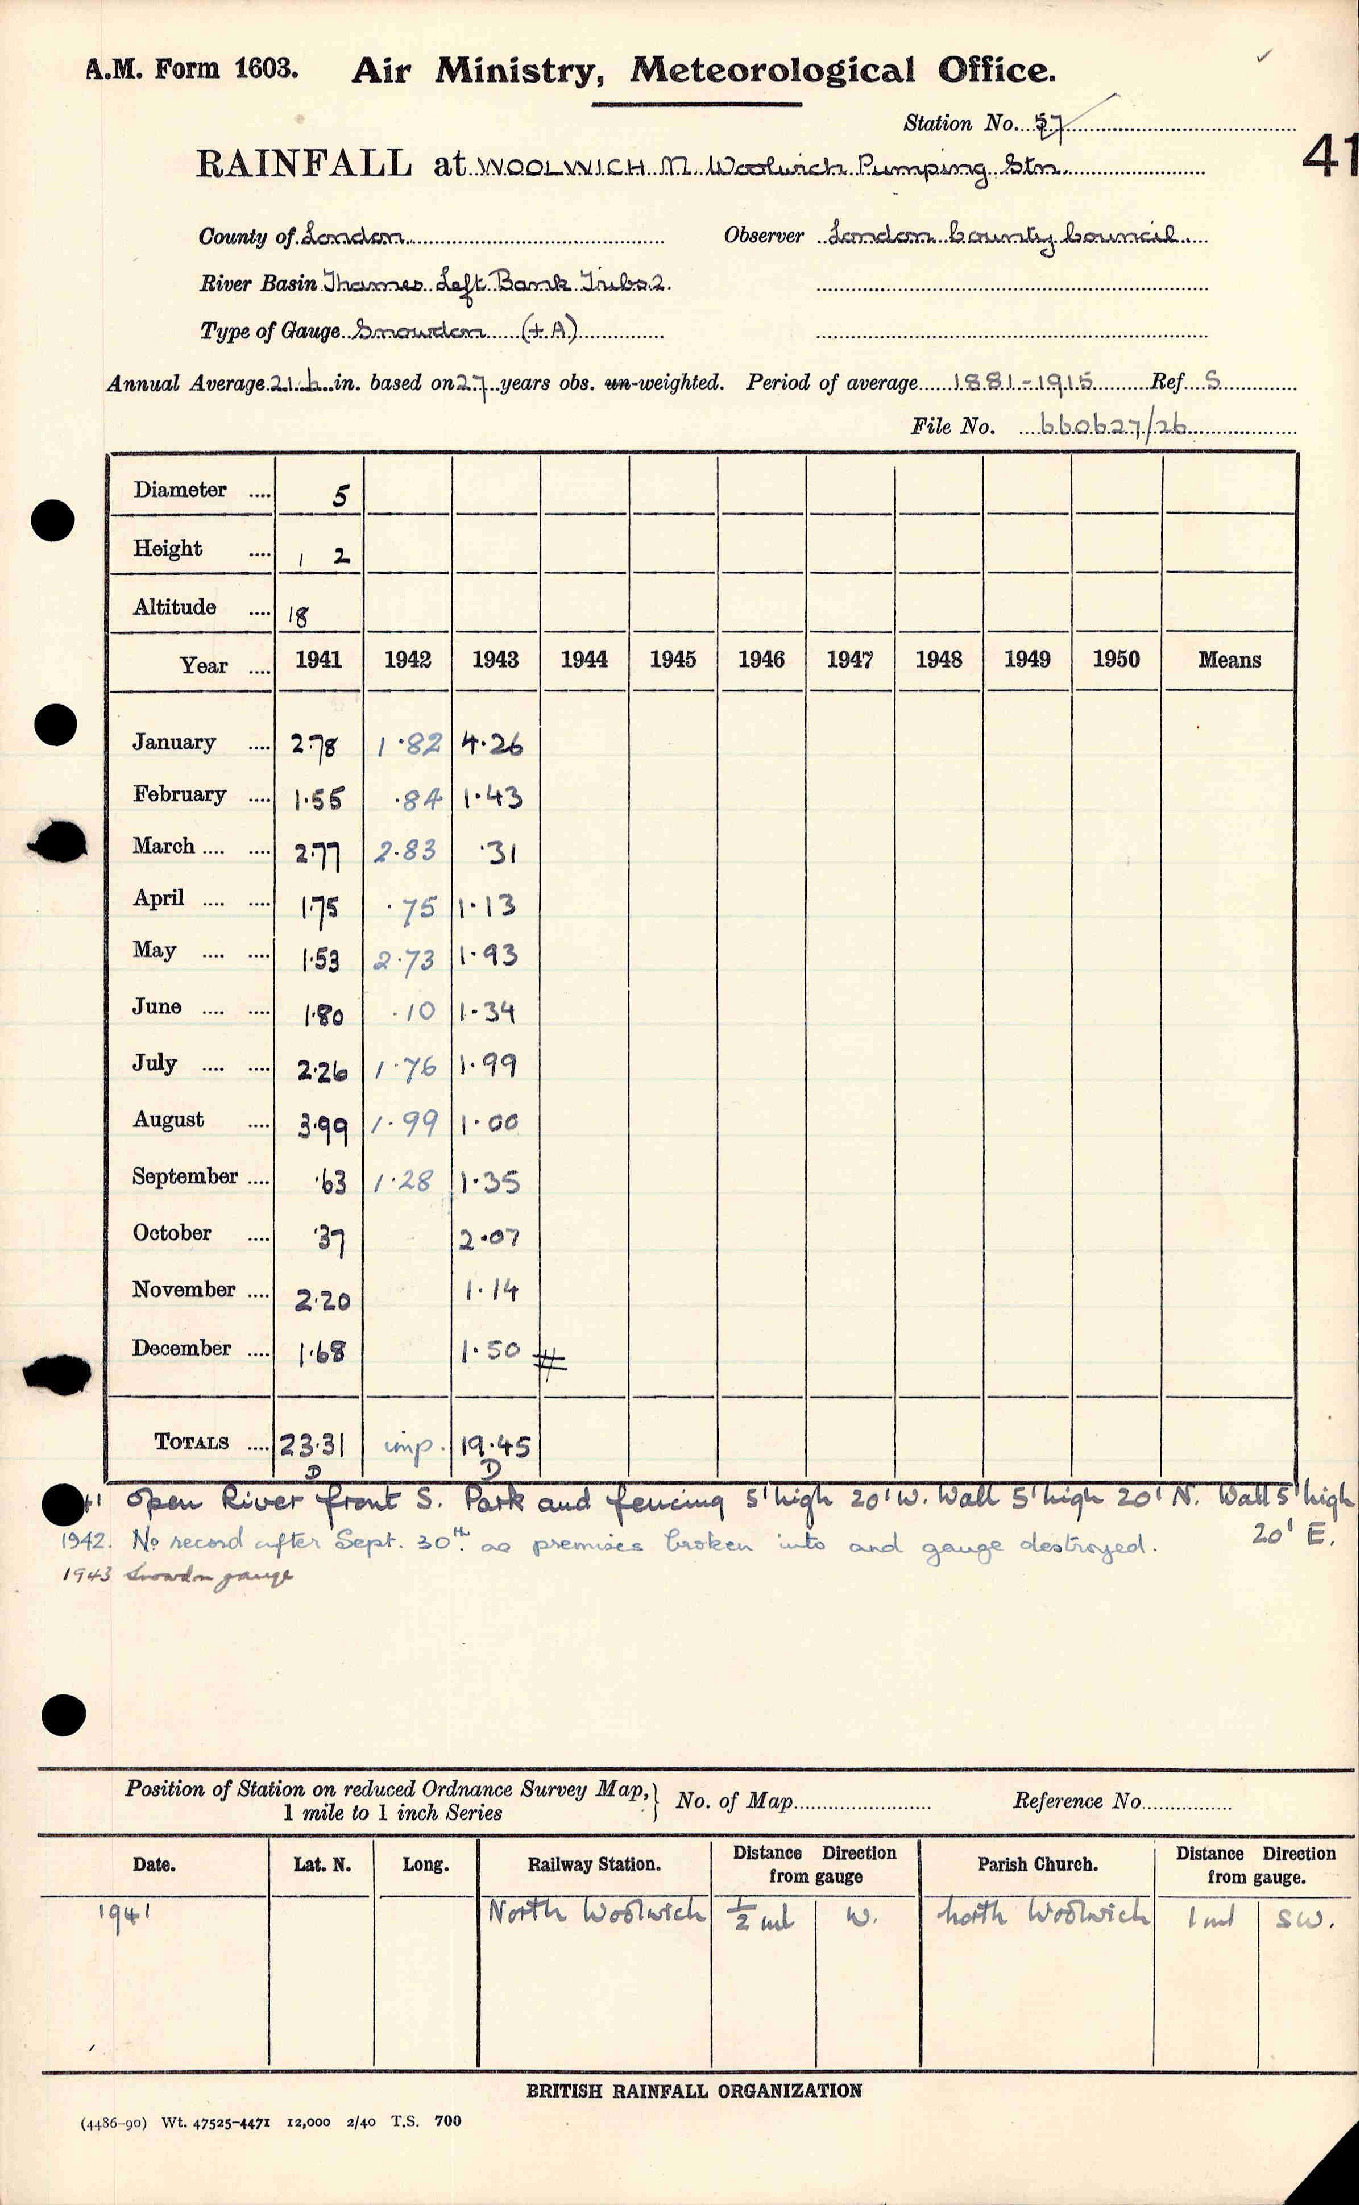 A.M. Form 1603. Air Ministry, Meteorological Office.
Station No. 57
41
RAINFALL at WOOLWICH N. Woolwich Pumping Stn.
County of London Observer London County Council.
River Basin Thames Left Bank Tribs 2.
Type of Gauge Snowdon (+A)
Annual Average 21.6 in. based on 27 years obs. un-weighted. Period of average 1881-1915 Ref S
File No. 660627/26
Diameter .... 5
Height .... 1 2
Altitude .... 18
Year .... 1941 1942 1943 1944 1945 1946 1947 1948 1949 1950 Means
January .... 2.78 1.82 4.26
February .... 1.55 .84 1.43
March .... .... 2.77 2.83 .31
April .... .... 1.75 .75 1.13
May .... .... 1.53 2.73 1.93
June .... .... 1.80 .10 1.34
July .... .... 2.26 1.76 1.99
August .... 3.99 1.99 1.00
September .... .63 1.28 1.35
October .... .37 2.07
November .... 2.20 1.14
December .... 1.68 1.50 #
TOTALS .... 23.31 imp. 19.45
D D
41 open River front S. Park and fencing 5' high 20' W. Wall 5' high 20' N. Wall 5' high
20' E.
1942. No record after Sept. 30th. as premises broken into and gauge destroyed.
1943 Snowdon gauge
Position of Station on reduced Ordnance Survey Map, } No. of Map Reference No.
1 mile to 1 inch Series
Date. Lat. N. Long. Railway Station. Distance Direction from gauge Parish Church. Distance Direction from gauge.
1941 North Woolwich ½ ml W. north Woolwich 1 ml SW.
BRITISH RAINFALL ORGANIZATION
(4486-90) Wt. 47525-4471 12,000 2/40 T.S. 700